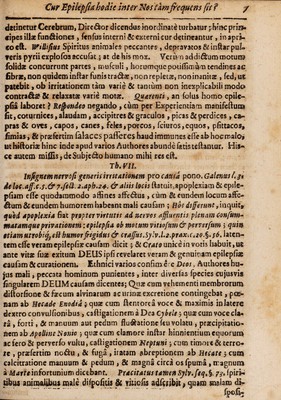 Cur Epilepsia hodie inter Nos tàm frequens sit? 7
detinetur Cerebrum, Director dicendus inordinatè turbatur; hinc prin-
cipes illæ functiones, sensus interni & externi cur detineantur, in apri-
co est. Willisius Spiritus animales peccantes, depravatos & instar pul-
veris pyrii explosos accusat; at de his mox. Verùm additum motum
solidæ concurrunt partes, musculi, horumque potissimùm tendines ac
fibræ, non quidem instar funis tractæ, non repletæ, inanitæve, sed, ut
patebit, ob irritationem tàm varië & tantùm non inexplicabili modo
contractæ & relaxatæ varië motæ. Quæreris, an solus homo epile-
psiâ laboret? Respondeo negando, cùm per Experientiam manifestum
sit, coturnices, alaudam, accipitres & graculos, picas & perdices, ca-
pras & oves, capos, canes, feles, porcos, sciuros, equos, psittacos,
simias, & præsertim salaces passeres haud immunes esse ab hoc malo,
ut historiæ hinc inde apud varios Authores abundè satis testantur. His-
ce autem missis, de Subjecto humano mihi res est.
Th. VII.
Insignem nervosi generis irritationem pro causâ pono. Galenus l. 3.
de loc. aff. c. 5. & 7. sect. 2. aph. 24. & aliis locis statuit, apoplexiam & epile-
psiam esse quodammodo affines affectus, cùm & eundem locum affe-
ctum & eundem humorem habeant mali causam; Hoc differunt, inquit,
quòd apoplexia fiat propter virtutes ad nervos affluentis plenam consum-
matamque privationem; epilepsia ob motum vitiosum & perversum; quin
etiam utrobiq; sit humor frigidus & crassus. Sylv. L. 2. prax. c. 26. §. 36. laten-
tem esse veram epilepsiæ causam dicit; & Crato unicè in votis habuit, ut
ante vitæ suæ exitum DEUS ipsi revelaret veram & genuinam epilepsiæ
causam & curationem. Ethnici variò consulêre Deos. Authores hu-
jus mali, peccata hominum punientes, inter diversas species cujusvis
singularem DEUM causam dicentes; Quæ cum vehementi membrorum
distorsione & fæcum alvinarum ac urinæ excretione contingebat, pœ-
nam ab Hecade Enodeâ; quæ cum stentoreâ voce & maximis in latere
dextro convulsionibus, castigationem à Dea Cybele; quæ cum voce cla-
râ, forti, & manuum aut pedum fluctuatione seu volatu, præcipitatio-
nem ab Apolline Nonio; quæ cum clamore instar hinnientium equorum
ac fero & perverso vultu, castigationem Neptuni; cum timore & terro-
re, præsertim noctu, & fugâ, iratam abreptionem ab Hecate; cum
calcitratione manuum & pedum, & magnâ circà os spumâ, tragnum
à Marte infortunium dicebant. Præcitatus tamen Sylv. seq. §. 73. spiri-
tibus animalibus malè dispositis & vitiosis adscribit, quam malam di-
sposi-